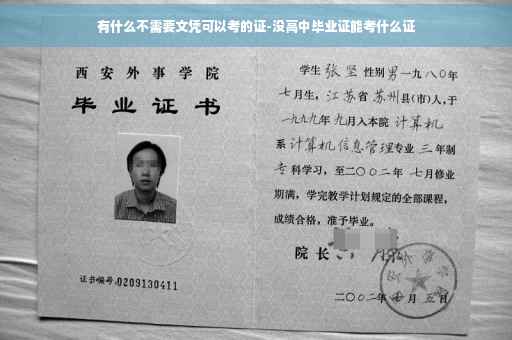 有什么不需要文凭可以考的证-没高中毕业证能考什么证
西安外事学院
毕业证书
证书编号:0209130411
学生 张坚 性别 男 一九八〇年
七月生，江苏省 苏州 县(市)人，于
一九九九年 九月入本院 计算机
系 计算机信息管理 专业 三 年制
专 科学习，至二〇〇二年 七月修业
期满，学完教学计划规定的全部课程，
成绩合格，准予毕业。
院长
二〇〇二年 月 五日